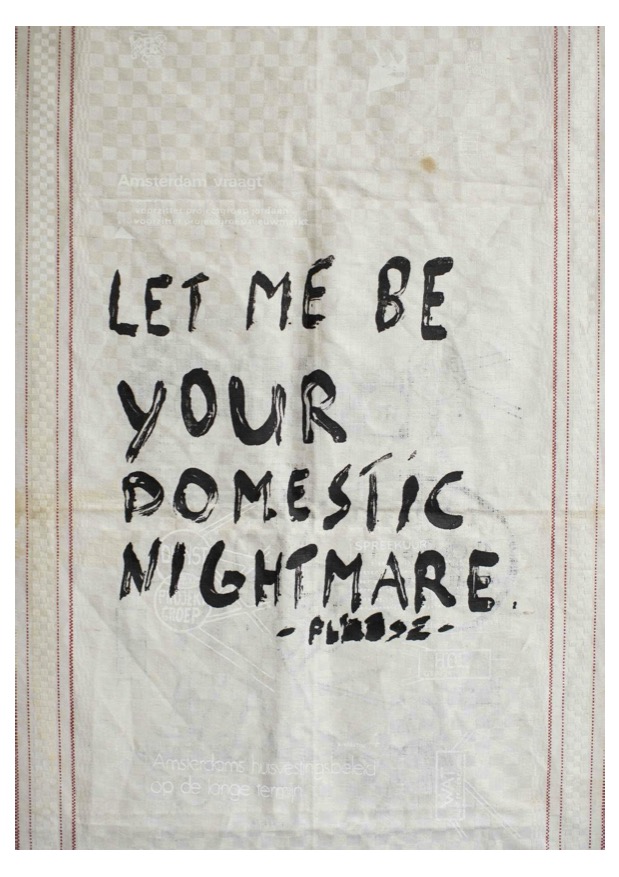 Amsterdam vraagt
LET ME BE
YOUR
DOMESTIC
NIGHTMARE.
GROEP
- PLEASE -
Amsterdams huisvestingsbeleid
op de lange termijn